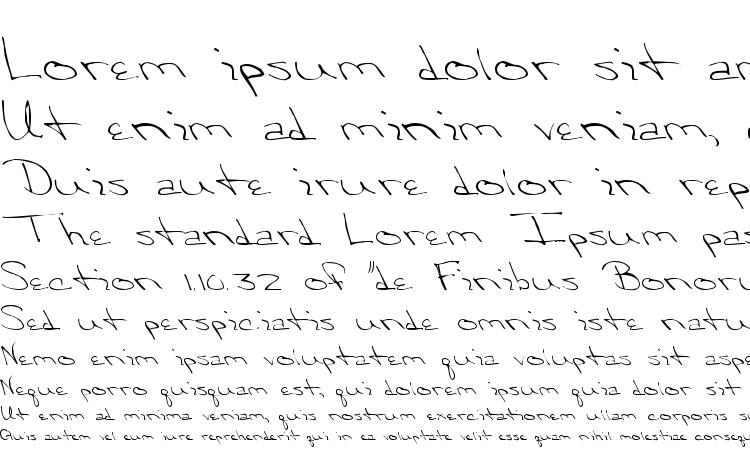 Lorem ipsum dolor sit am
Ut enim ad minim veniam,
Duis aute irure dolor in rep
The standard Lorem Ipsum pas
Section 1.10.32 of "de Finibus Bonoru
Sed ut perspiciatis unde omnis iste natu
Nemo enim ipsam voluptatem quia voluptas sit aspe
Neque porro quisquam est, qui dolorem ipsum quia dolor sit
Ut enim ad minima veniam, quis nostrum exercitationem ullam corporis s
Quis autem vel eum iure reprehenderit qui in ea voluptate velit esse quam nihil molestiae consequ